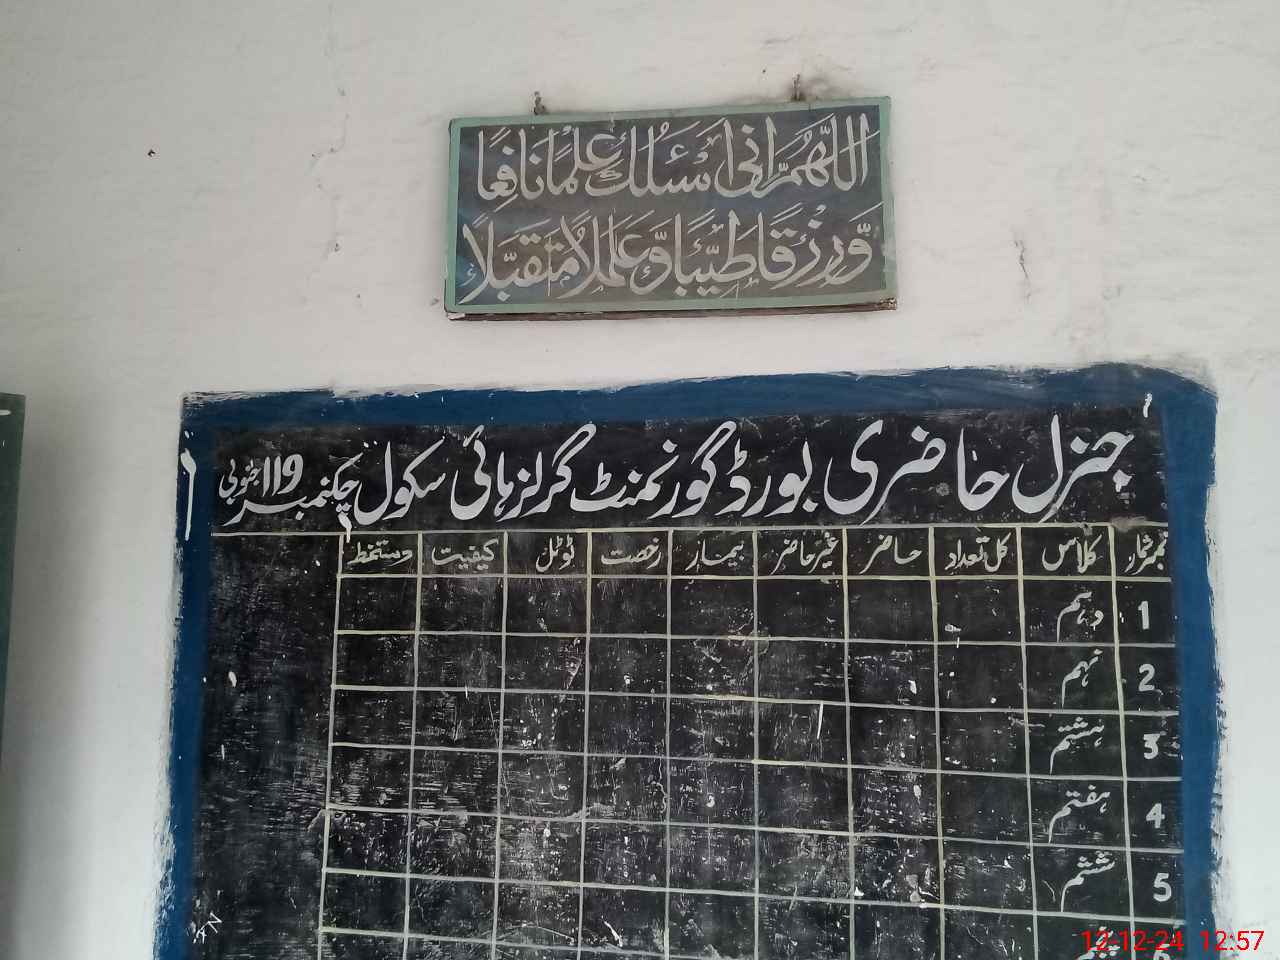 اللّٰهُمَّ اِنِّی اَسْئَلُكَ عِلْمًا نَافِعًا
وَّرِزْقًا طَيِّبًا وَّعَمَلًا مُّتَقَبَّلًا
جنرل حاضری بورڈ گورنمنٹ گرلز ہائی سکول چک نمبر 119 جنوبی
نمبر شمار کلاس کل تعداد حاضر غیر حاضر بیمار رخصت ٹوٹل کیفیت دستخط
1 دہم
2 نہم
3 ہشتم
4 ہفتم
5 ششم
12-12-24 12:57